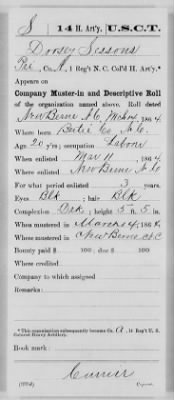 S 14 H. Art'y. U.S.C.T.
Dorsey Sessons
Pvt, Co. A, 1 Reg't N. C. Col'd H. Art'y.*
Appears on
Company Muster-in and Descriptive Roll
of the organization named above. Roll dated
New Berne N.C., Mch 24, 1864
Where born Bertie Co, N.C.
Age 20 y'rs; occupation Labour
When enlisted Mar 11, 1864
Where enlisted New Berne N.C.
For what period enlisted 3 years.
Eyes Blk; hair Blk
Complexion Drk; height 5 ft. 5 in.
When mustered in March 24, 1864
Where mustered in New Berne N.C.
Bounty paid $ 100; due $ 100
Where credited
Company to which assigned
Remarks:
* This organization subsequently became Co. A, 14 Reg't U. S.
Colored Heavy Artillery.
Book mark:
Copyist.